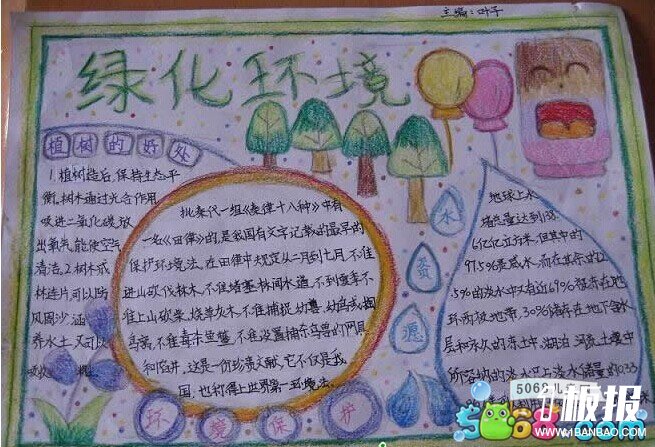 主编:叶子
绿化环境
植树的好处
1.植树造后,保持生态平
衡,树木通过光合作用
吸进二氧化碳,放
出氧气,能使空气
清洁.2.树木成
林连片,可以防
风固沙,涵
养水土,又可以
吸收
批秦代一组《秦律十八种》中有
一名《田律》的,是我国有文字记载的最早的
保护环境法,在田律中规定从一月到七月,不准
进山砍伐林木,不准堵塞林间水道,不到夏季不
准上山砍柴,烧草灰木,不准捕捉幼兽,幼鸟或掏
鸟蛋,不准毒杀鱼鳖,不准设置捕杀鸟兽的网具
和陷井,这是一份珍贵文献,它不仅是我
国,也称得上世界第一环境法.
环境保护
水资源
地球上水
储总量达到138
.6亿亿立方米,但其中的
97.5%是咸水,而在其余的2
.5%的淡水中又有近69%储存在地
球两极地带,30%储存在地下含水
层和永久的冻土中,湖泊 河流 土壤中
所容纳的淡水只占淡水储量的0.33
5068儿童网
板报
WWW.1BANBAO.COM